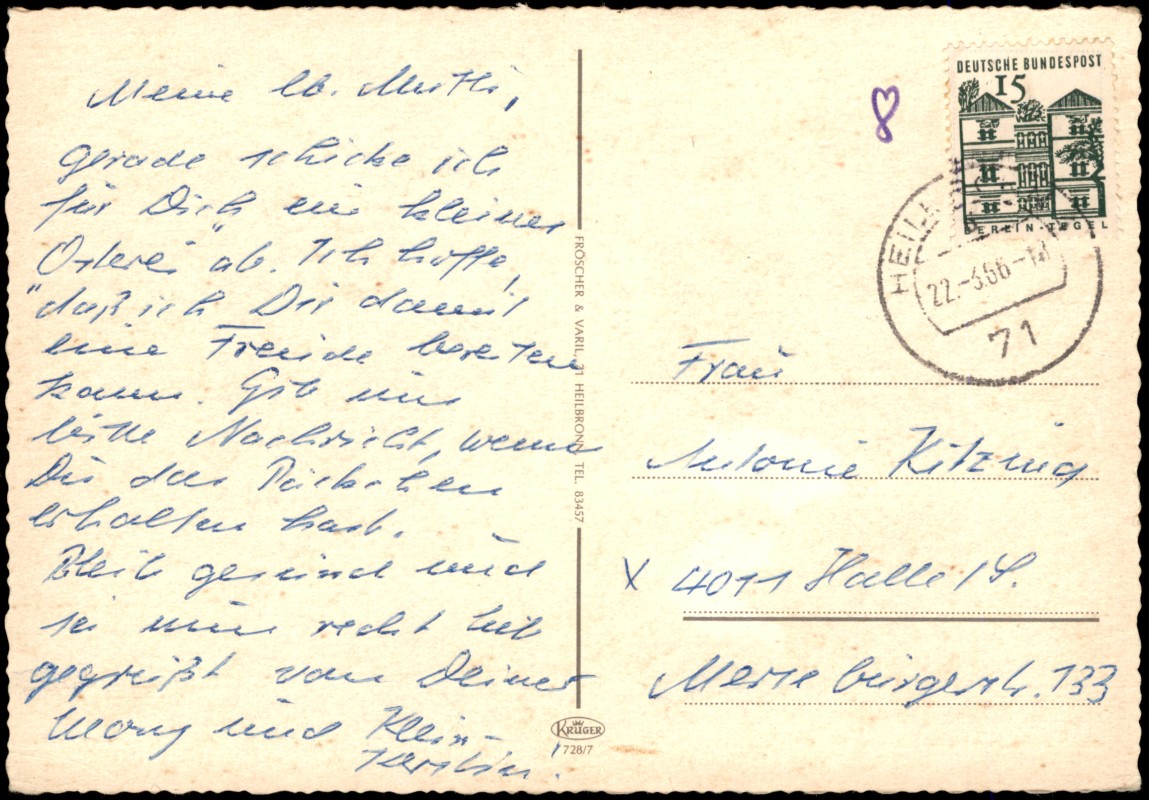 Meine lb. Mutti,
gerade schicke ich
für Dich ein kleines
"Osterei" ab. Ich hoffe,
daß ich Dir damit
eine Freude bereiten
kann. Gib mir
bitte Nachricht, wenn
Du das Päckchen
erhalten hast.
Bleib gesund und
sei nun recht lieb
gegrüßt von Deiner
und Klein-
Kerstin!
FRÖSCHER & VARIL, 71 HEILBRONN TEL. 83457
KRÜGER
728/7
DEUTSCHE BUNDESPOST
15
BERLIN-TEGEL
22.-3.66-
71
Frau
Antonie Kitzing
X 4011 Halle/S.
Merseburgerstr. 133